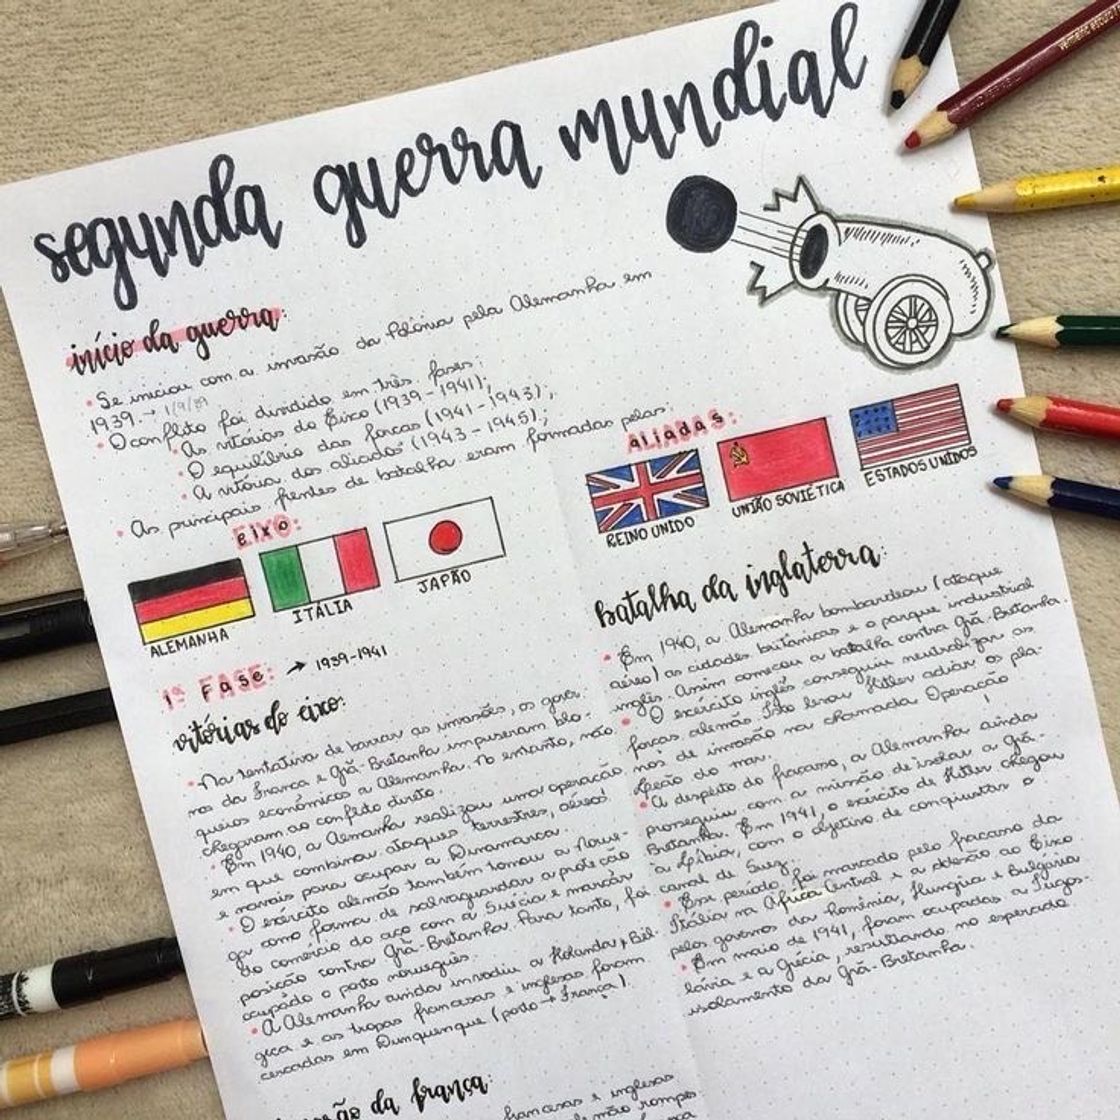 segunda guerra mundial
início da guerra:
• Se iniciou com a invasão da Polônia pela Alemanha em
1939. → 1/9/39
• O conflito foi dividido em três fases:
• As vitórias do Eixo (1939-1941);
• O equilíbrio das forças (1941-1943);
• A vitória dos aliados (1943-1945);
• As principais frentes de batalha eram formadas pelas:
EIXO:
ALEMANHA
ITÁLIA
JAPÃO
ALIADAS:
REINO UNIDO
UNIÃO SOVIÉTICA
ESTADOS UNIDOS
1ª FASE: → 1939-1941
vitórias do eixo:
• Na tentativa de barrar as invasões, os gover-
nos da França e Grã-Bretanha impuseram blo-
queios econômicos a Alemanha. No entanto, não
chegaram ao conflito direto.
• Em 1940, a Alemanha realizou uma operação
em que combinou ataques terrestres, aéreos
e navais para ocupar a Dinamarca.
• O exército alemão também tomou a Norue-
ga como forma de salvaguardar a proteção
do comércio do aço com a Suécia e marcar
posição contra Grã-Bretanha. Para tanto, foi
ocupado o porto norueguês.
• A Alemanha ainda invadiu a Holanda e Bél-
gica e as tropas francesas e inglesas foram
cercadas em Dunquerque (porto → França).
são da frança:
francesas e inglesas
não rompe
batalha da inglaterra:
• Em 1940, a Alemanha bombardeou (ataque
aéreo) as cidades britânicas e o parque industrial
inglês. Assim começou a batalha contra Grã-Bretanha.
• O exército inglês conseguiu neutralizar as
forças alemãs. Isto levou Hitler adiar os pla-
nos de invasão na chamada Operação
Leão do mar.
• A despeito do fracasso, a Alemanha ainda
prosseguiu com a missão de isolar a Grã-
Bretanha. Em 1941, o exército de Hitler chegou
à Líbia, com o objetivo de conquistar o
canal de Suez.
• Esse período foi marcado pelo fracasso da
Itália na África Central e a adesão ao Eixo
pelos governos da Romênia, Hungria e Bulgária.
• Em maio de 1941, foram ocupadas a Iugos-
lávia e a Grécia, resultando no esperado
isolamento da Grã-Bretanha.